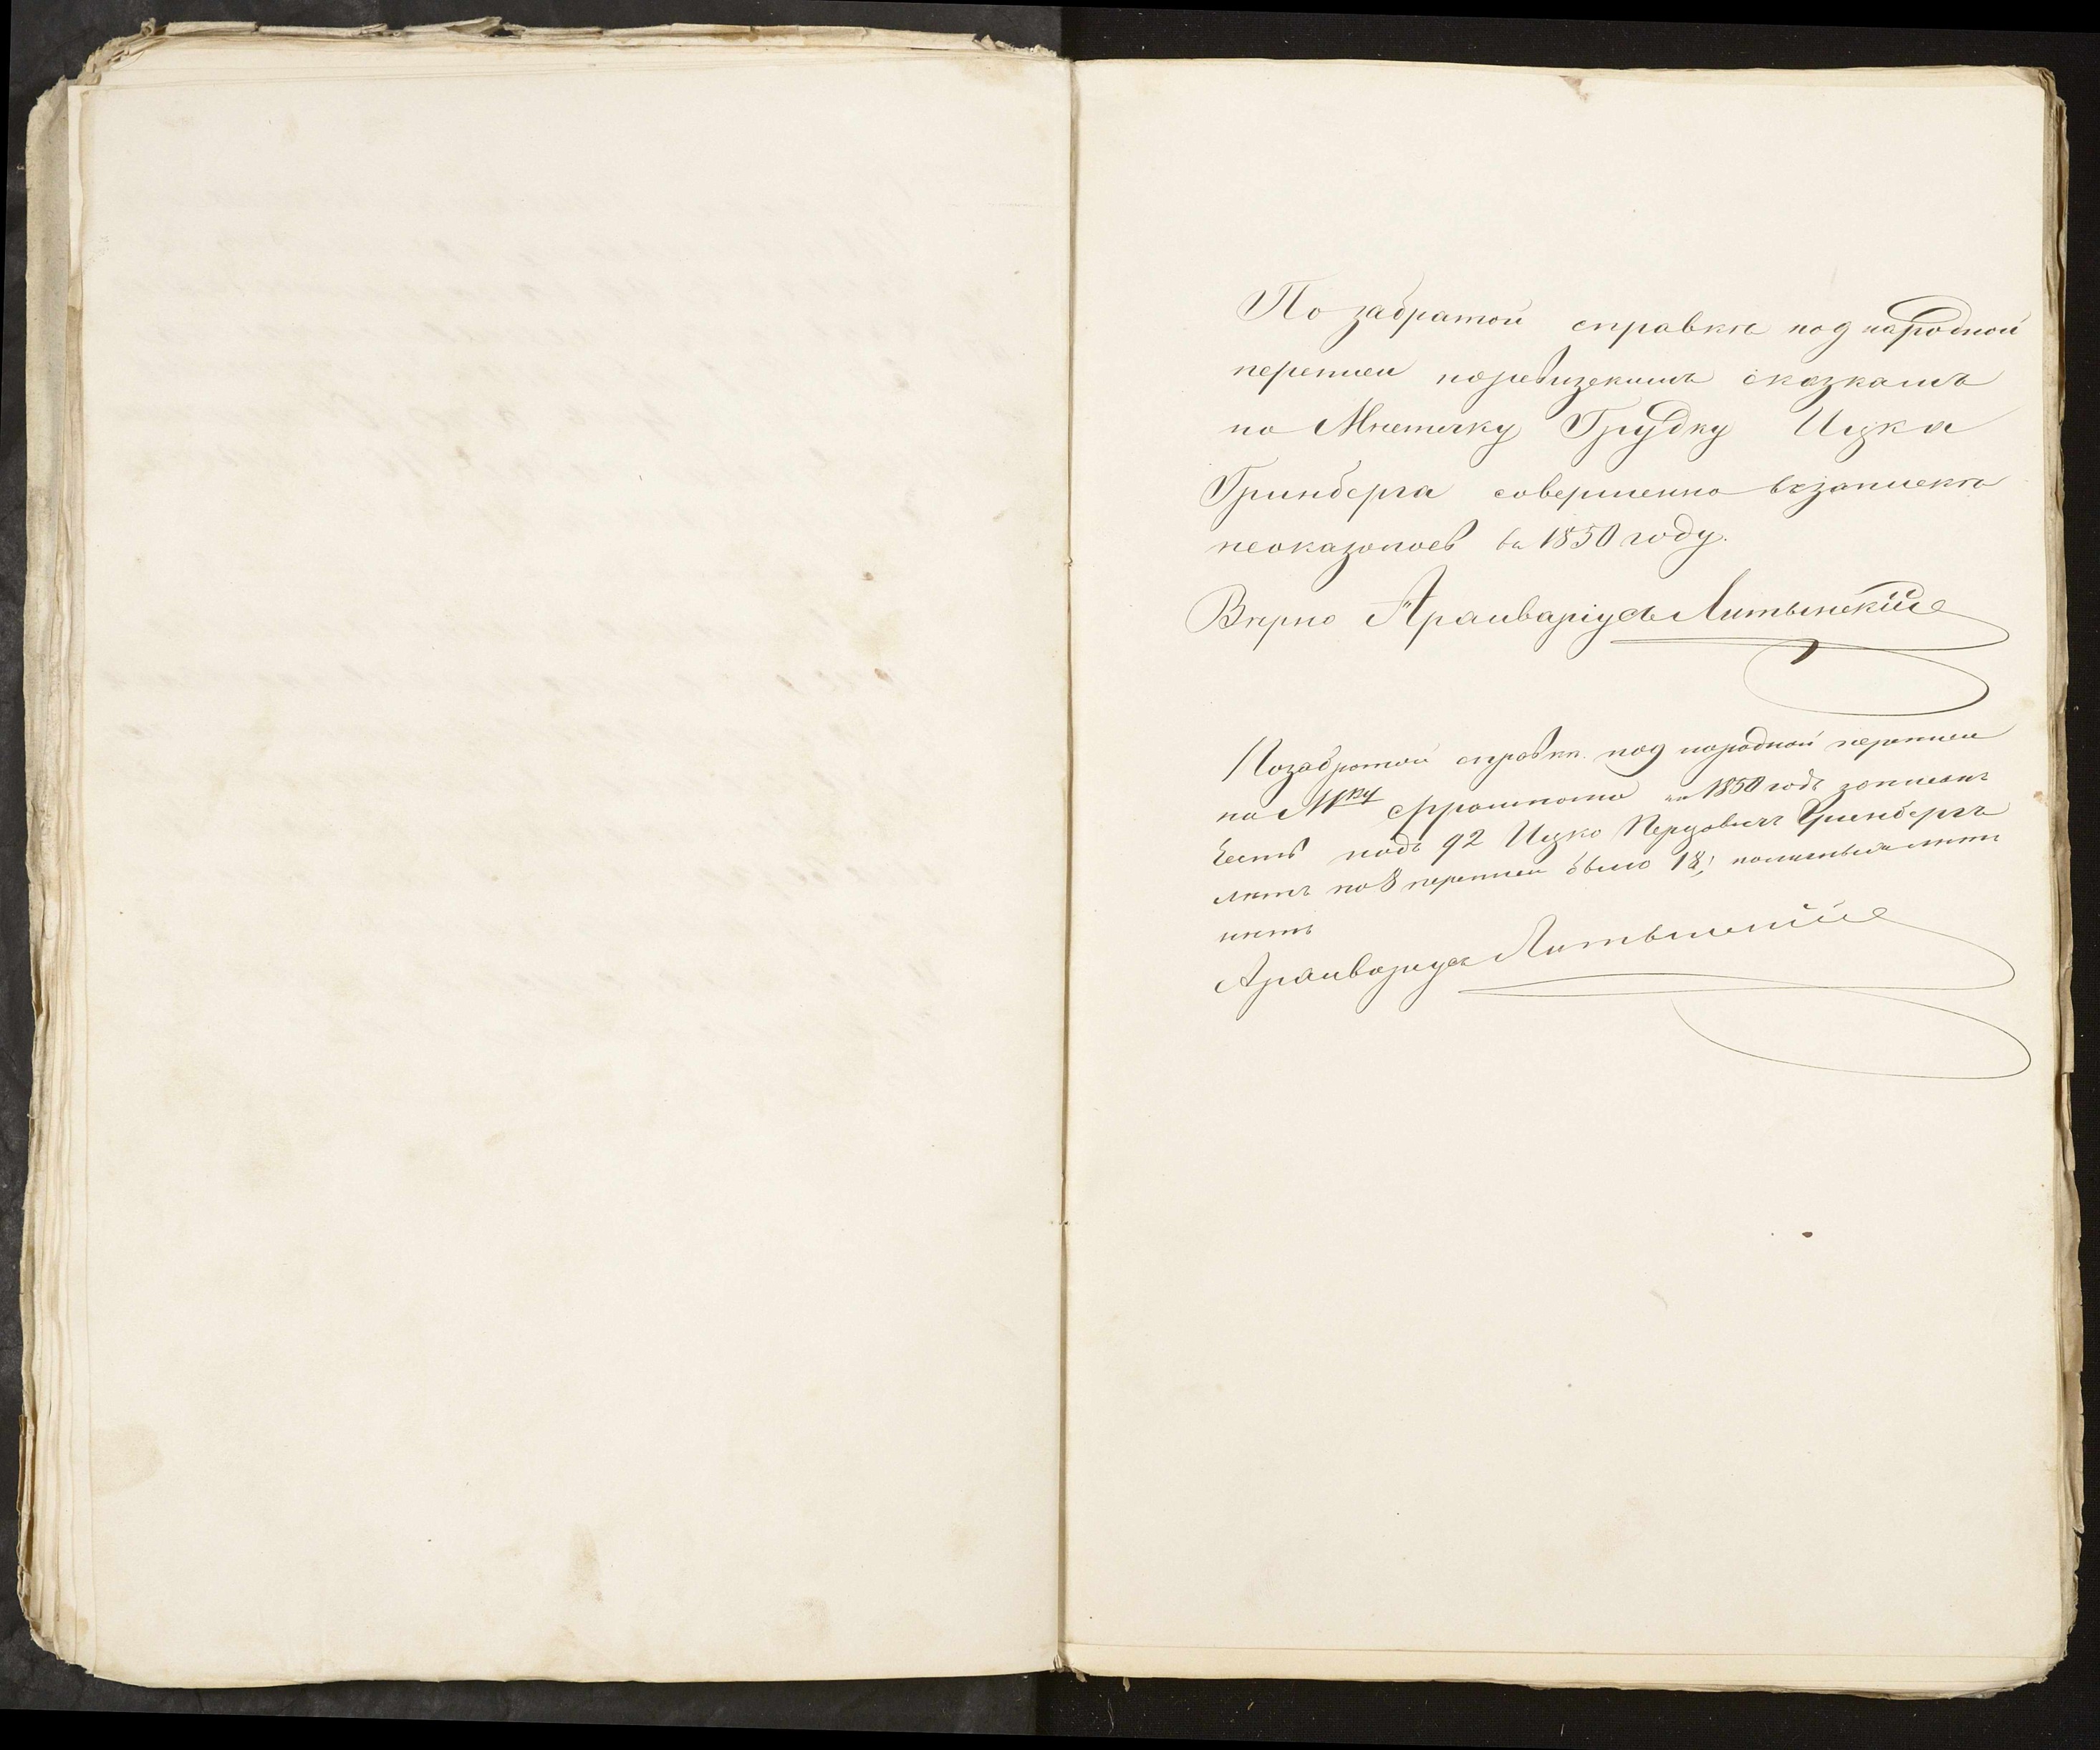 По забратой справкѣ под народной
переписи поревизскимъ сказкамъ
по Мѣстечку Грудку Ицка
Гринберга совершенно взапискѣ
неоказалось въ 1850 году.
Вѣрно Архиваріусъ Литынскій
Позабратой справкѣ под народной переписи
по Мку 1850 годъ записанъ
Есть подъ 92 Ицко Гринбергъ
лѣтъ по 8 переписи было 18,
нѣтъ
Архиваріусъ Литынскій